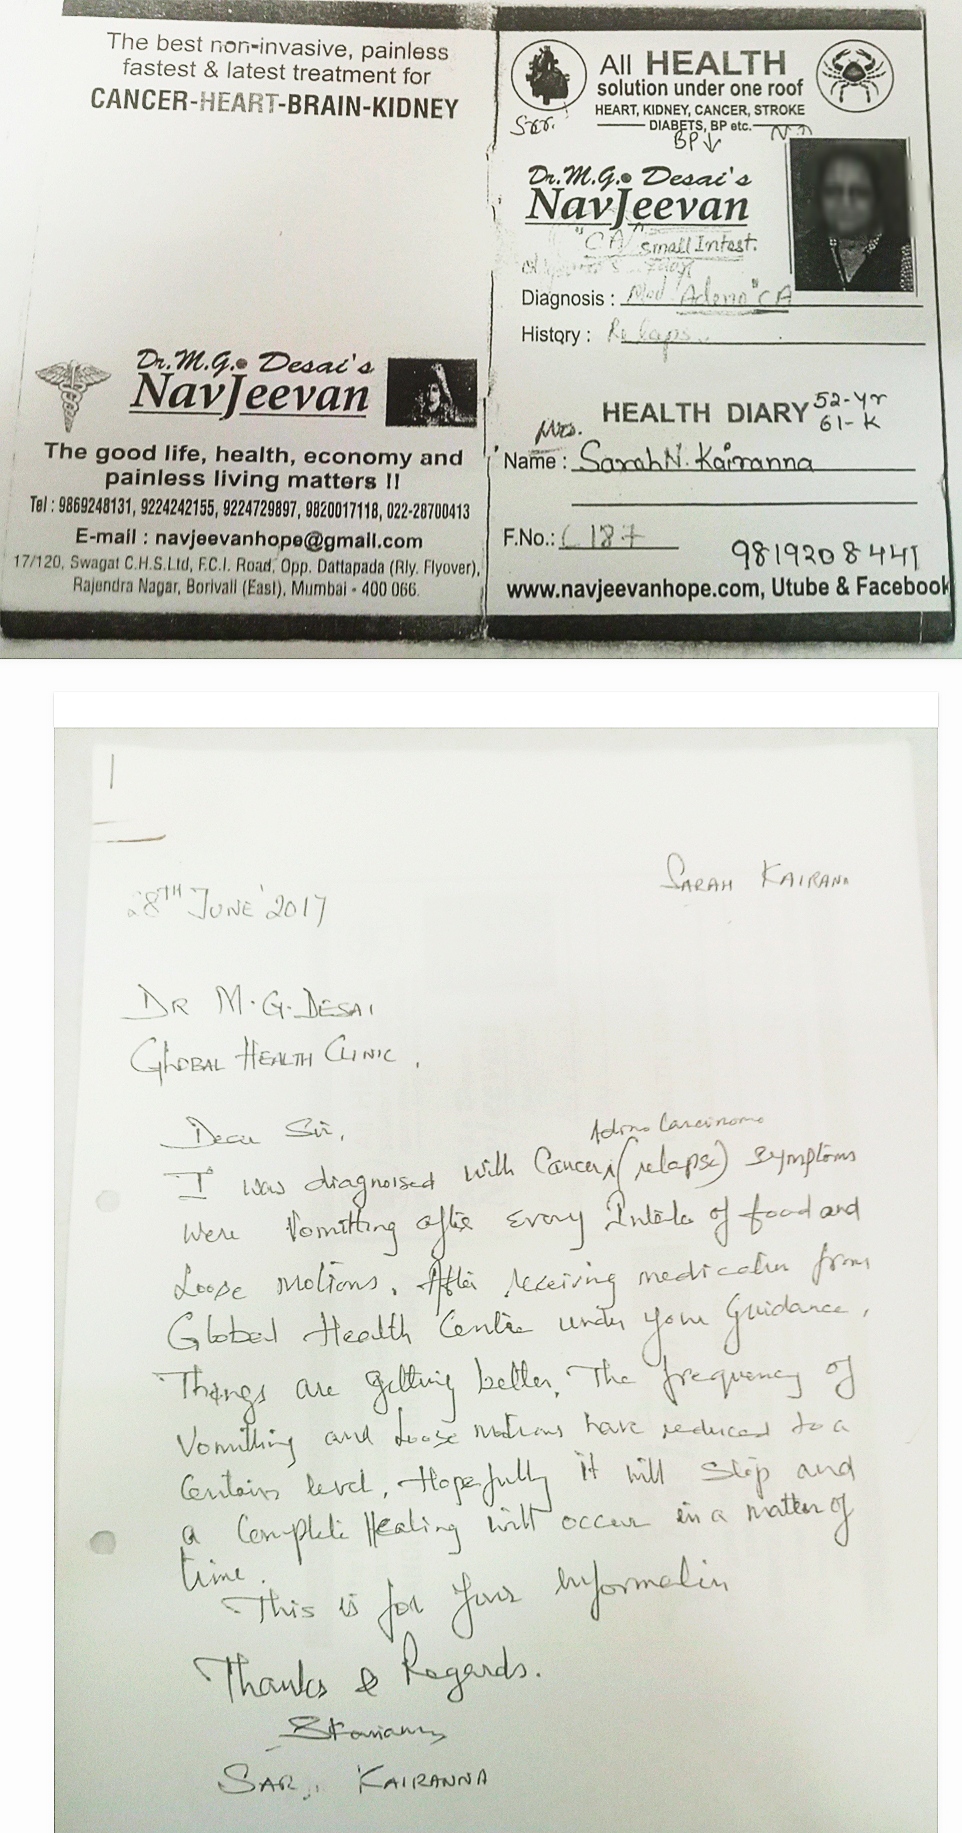 The best non-invasive, painless
fastest & latest treatment for
CANCER-HEART-BRAIN-KIDNEY
Dr. M.G. Desai's
NavJeevan
The good life, health, economy and
painless living matters !!
Tel : 9869248131, 9224242155, 9224729897, 9820017118, 022-28700413
E-mail : navjeevanhope@gmail.com
17/120, Swagat C.H.S.Ltd, F.C.I. Road, Opp. Dattapada (Rly. Flyover),
Rajendra Nagar, Borivali (East), Mumbai - 400 066.
All HEALTH
solution under one roof
HEART, KIDNEY, CANCER, STROKE
DIABETS, BP etc.
BP↓
Dr. M.G. Desai's
NavJeevan
"CA" small Intest.
Diagnosis : Mod Adeno "CA
History : Relaps
HEALTH DIARY 52-yr
61-K
Mrs.
Name : Sarah N. Kairanna
F.No.: C 187
9819208441
www.navjeevanhope.com, Utube & Facebook
SARAH KAIRANN
28TH JUNE '2017
DR M.G. DESAI
GLOBAL HEALTH CLINIC,
Dear Sir,
Adeno Carcinoma
I was diagnoised with Cancer (relapse) Symptoms
were Vomitting after Every Intake of food and
Loose motions. After receiving medication from
Global Health Centre under your Guidance,
Things are getting better. The frequency of
Vomitting and Loose motions have reduced to a
Certain level, Hopefully it will stop and
a Complete Healing will occur in a matter of
time.
This is for your information
Thanks & Regards.
SAR KAIRANNA